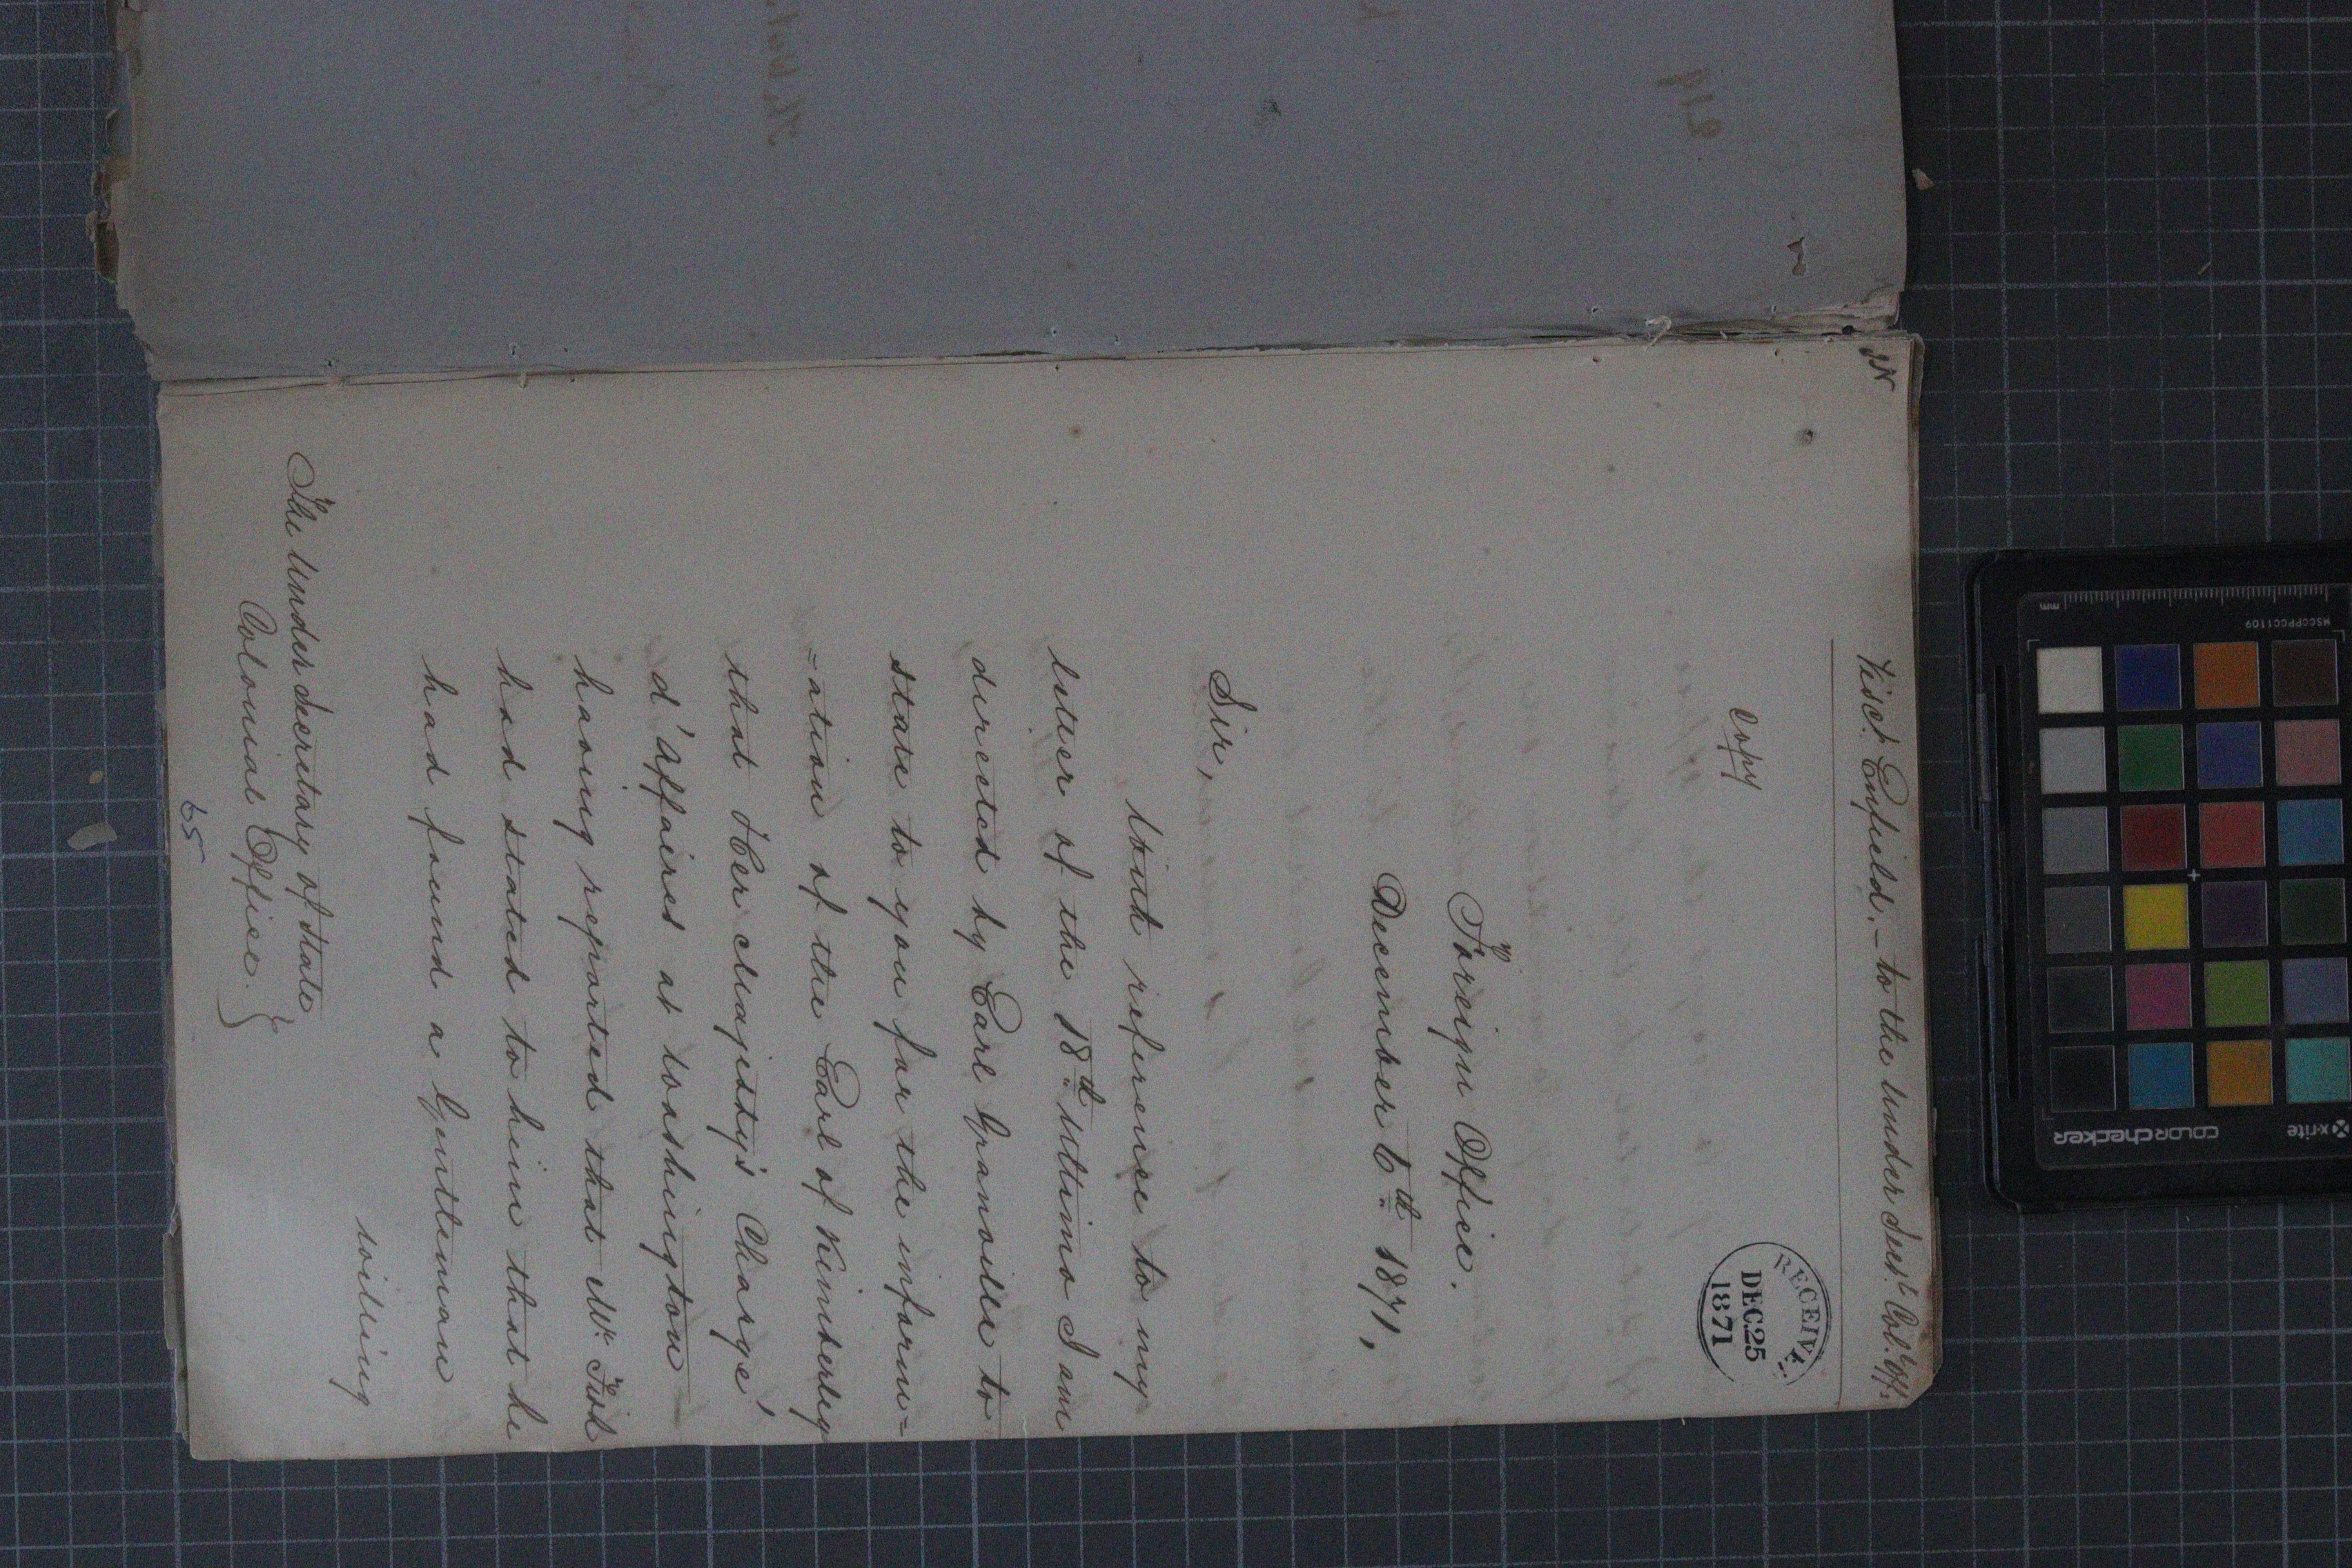 Visct. Enfield. - to the Under Secy. Col. Off:
Copy
RECEIVE
DEC 25
1871
Foreign Office.
December 6th. 1871,
Sir,
With reference to my
letter of the 18th. Ultimo I am
directed by Earl Granville to
state to you for the inform=
=ation of the Earl of Kimberley
that Her Majesty's Chargé
d'Affaires at Washington
having reported that Mr. Fish
had stated to him that he
had found a Gentleman
willing
The Under Secretary of State
Colonial Office.
65
219
MSCCPPCC1109
mm
x-rite
colorchecker